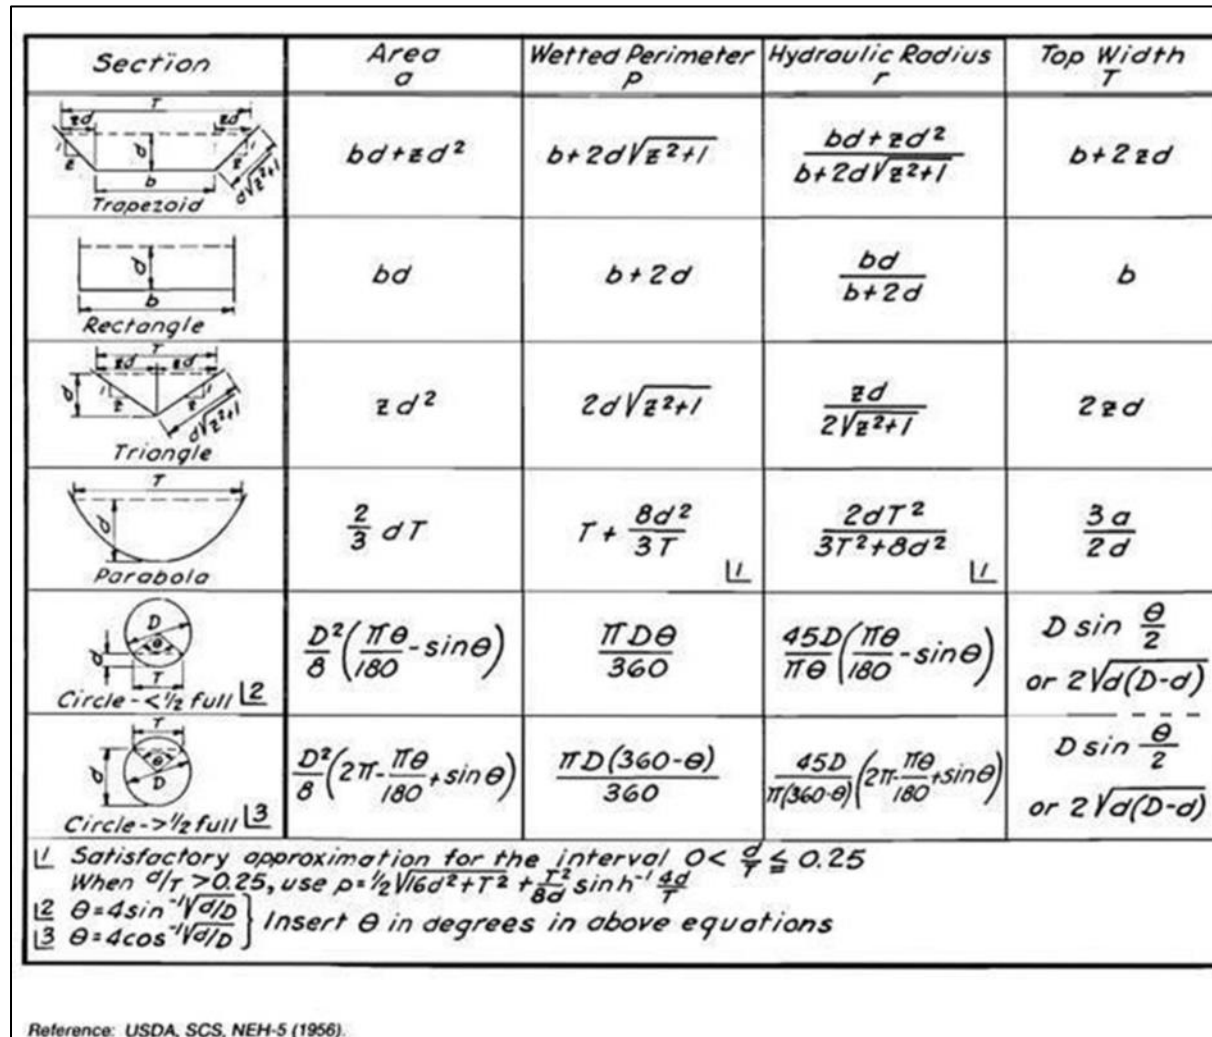 Section Area a Wetted Perimeter p Hydraulic Radius r Top Width T
T
zd zd
1 z d z 1
b d√z²+1
Trapezoid
bd+zd² b+2d√z²+1 (bd+zd²)/(b+2d√z²+1) b+2zd
d
b
Rectangle
bd b+2d bd/(b+2d) b
T
zd zd
d 1 z z 1
d√z²+1
Triangle
zd² 2d√z²+1 zd/(2√z²+1) 2zd
T
d
Parabola
2/3 dT T + 8d²/3T ⌊1 2dT²/(3T²+8d²) ⌊1 3a/2d
D
d θ
T
Circle-<½ full ⌊2
D²/8 (πθ/180 - sinθ) πDθ/360 45D/πθ (πθ/180 - sinθ) D sin θ/2
or 2√d(D-d)
T
θ
d D
Circle->½ full ⌊3
D²/8 (2π-πθ/180 + sinθ) πD(360-θ)/360 45D/π(360-θ) (2π-πθ/180 + sinθ) D sin θ/2
or 2√d(D-d)
⌊1 Satisfactory approximation for the interval 0< d/T ≦ 0.25
When d/T >0.25, use p=½√16d²+T² + T²/8d sinh⁻¹ 4d/T
⌊2 θ=4sin⁻¹√d/D
⌊3 θ=4cos⁻¹√d/D } Insert θ in degrees in above equations
Reference: USDA, SCS, NEH-5 (1956).